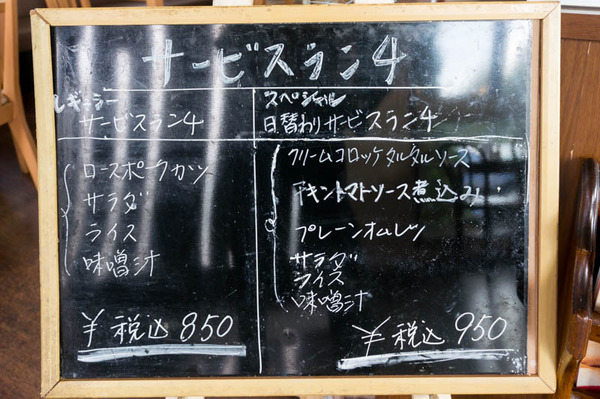 サービスランチ
レギュラー
サービスランチ
ロースポークカツ
サラダ
ライス
味噌汁
¥税込850
スペシャル
日替わりサービスランチ
クリームコロッケタルタルソース
チキントマトソース煮込み
プレーンオムレツ
サラダ
ライス
味噌汁
¥税込950